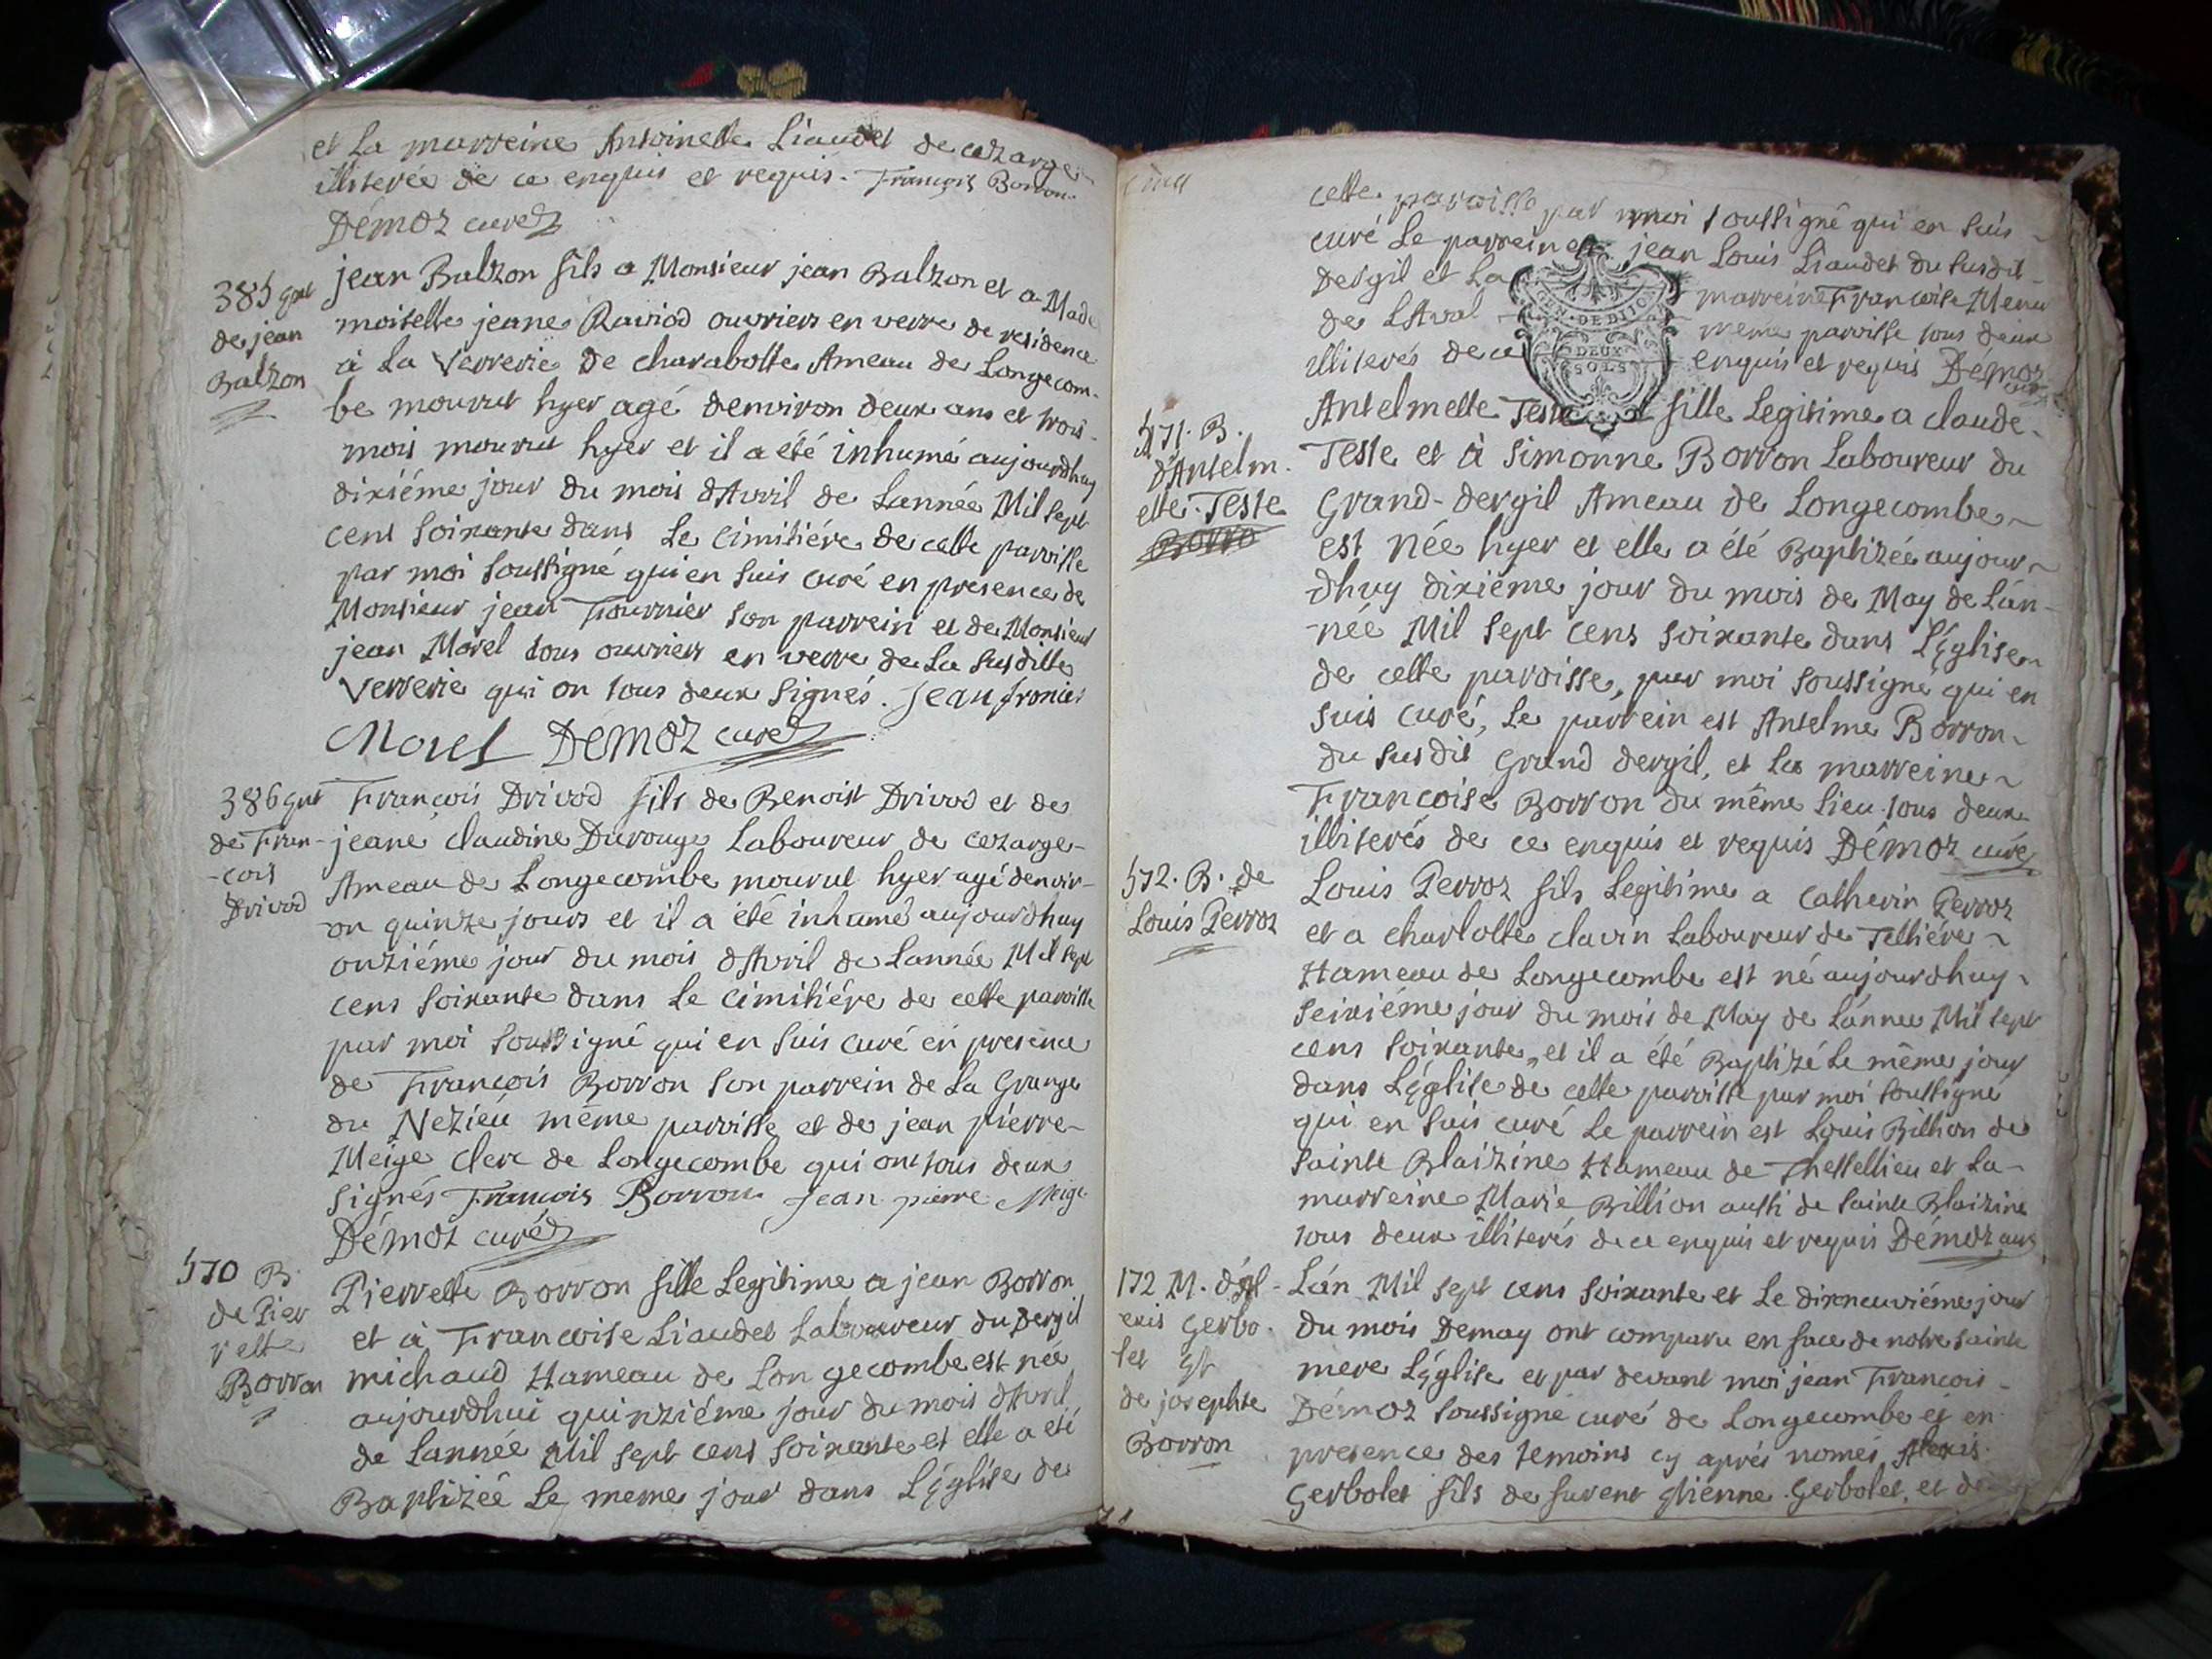 et La marreine Antoinette Liaudet de cezarge
illiterée de ce enquis et requis. François Borron.
Démoz curé
385 Gnt
de jean
Balzon
jean Balzon fils a Monsieur jean Balzon et a Made
moiselle jeane Raviod ouvriers en verre de residence
à La Verrerie de charabotte Ameau de Longecom-
be mourut hyer agé denviron deux ans et trois
mois mourut hyer et il a été inhumé aujourdhuy
dixiéme jour du mois dAvril de Lannée Mil sept
cens soixante dans Le cimitiére de cette parroisse
par moi soussigné qui en suis curé en presence de
Monsieur jean Fournier son parrein et de Monsieur
jean Morel tous ouvriers en verre de La susditte
Verrerie qui on tous deux signés. Jean fronier
Morel Démoz curé
386 Gnt
de Fran-
-cois
Drivod
François Drivod fils de Benoist Drivod et de
jeane claudine Durouge Laboureur de cezarge
Ameau de Longecombe mourut hyer agé denvir-
on quinze jours et il a été inhumé aujourdhuy
onziéme jour du mois dAvril de Lannée Mil sept
cens soixante dans Le cimitiére de cette parroisse
par moi soussigné qui en suis curé en presence
de François Borron son parrein de La Grange
du Nezieu même parroisse et de jean pierre
Meige clerc de Longecombe qui ont tous deux
signés François Borron Jean pierre Meige
Démoz curé
570 B.
de Pier
rette
Borron
Pierrette Borron fille Legitime a jean Borron
et à Francoise Liaudet Laboureur du Dergil
michaud Hameau de Longecombe est née
aujourdhui quinziéme jour du mois dAvril
de Lannée Mil sept cens soixante et elle a été
Baptizée Le meme jour dans LÉglise de
cette paroisse par moi soussigné qui en suis
curé Le parrein est jean Louis Liaudet du susdit
Dergil et La marreine Francoise
de meme paroisse tous deux
illiterés de ce enquis et requis Démoz
GEN. DE DIJON
DEUX
SOLS
571. B.
dAntelm.
ette Teste
Borro
Antelmette Teste fille Legitime a claude
Teste et à Simonne Borron Laboureur du
Grand-dergil Ameau de Longecombe
est née hyer et elle a été Baptizée aujour
dhuy dixiéme jour du mois de May de Lan-
-née Mil sept cens soixante dans LÉglise
de cette paroisse, par moi soussigné qui en
suis curé, Le parrein est Antelme Borron
du susdit Grand dergil, et La marreine
Francoise Borron du même lieu tous deux
illiterés de ce enquis et requis Démoz curé
572. B. de
Louis Perroz
Louis Perroz fils Legitime a Catherin Perroz
et a charlotte clavin Laboureur de Telliére
Hameau de Longecombe est né aujourdhuy
seiziéme jour du mois de May de Lánnee Mil sept
cens soixante, et il a été Baptizé Le même jour
dans LÉglise de cette parroisse par moi soussigné
qui en suis curé Le parrein est Louis Billion de
Sainte Blaizine Hameau de Thessellieu et La
marreine Marie Billion aussi de Sainte Blaizine
tous deux illiterés de ce enquis et requis Démoz curé
172 M. dAl-
exis Gerbo.
let Et
de josephte
Borron
Lán Mil sept cens soixante et Le dixneuviéme jour
du mois Demay ont comparu en face de notre sainte
mere LÉglise et par devant moi jean Francois
Démoz soussigné curé de Longecombe et en
presence des temoins cy aprés només Alexis
Gerbolet fils de furent Etienne Gerbolet, et de